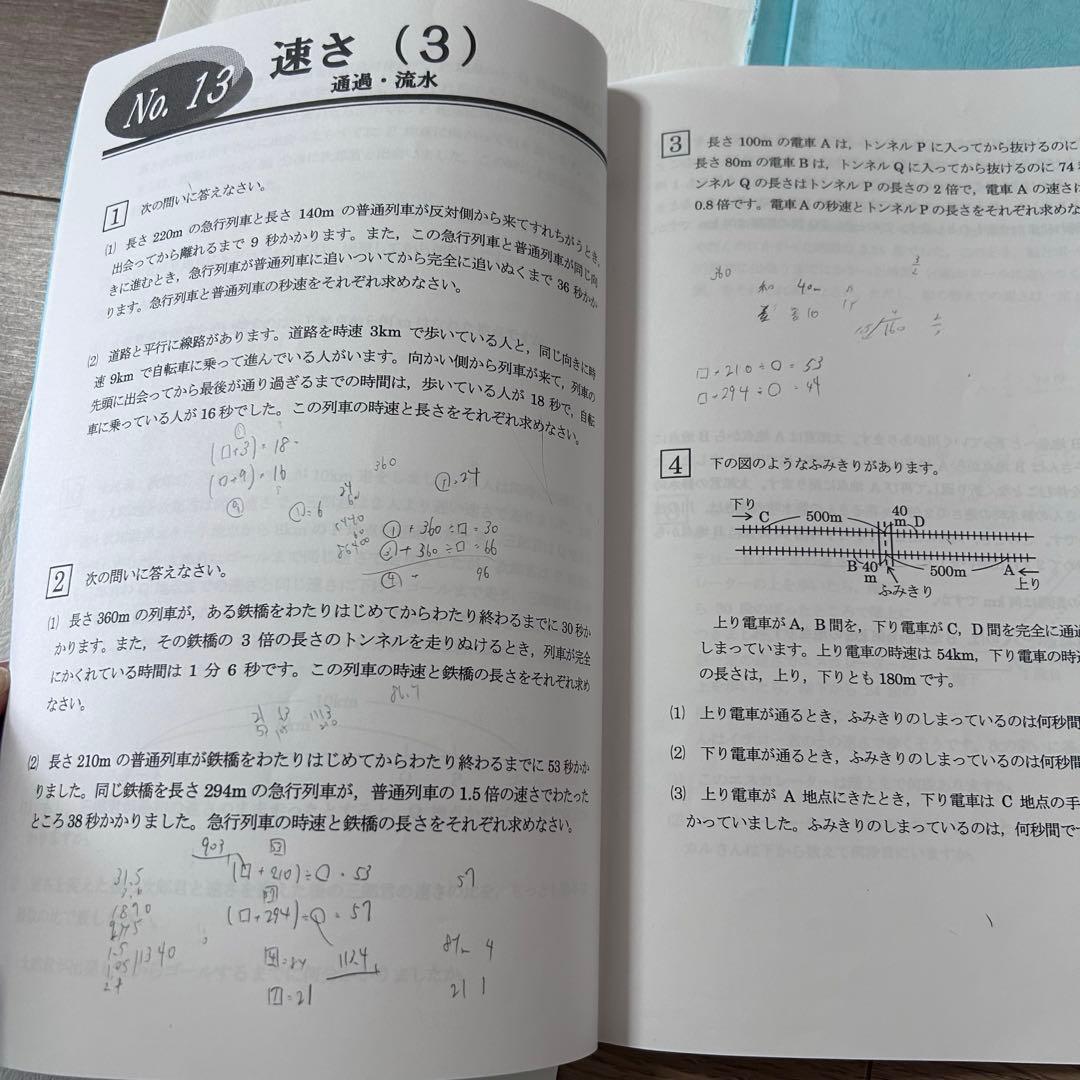 No. 13
速さ (3)
通過・流水
1 次の問いに答えなさい。
(1) 長さ 220m の急行列車と長さ 140m の普通列車が反対側から来てすれちがうとき,
出会ってから離れるまで 9 秒かかります。また, この急行列車と普通列車が同じ向
きに進むとき, 急行列車が普通列車に追いついてから完全に追いぬくまで 36 秒かか
ります。急行列車と普通列車の秒速をそれぞれ求めなさい。
(2) 道路と平行に線路があります。道路を時速 3km で歩いている人と, 同じ向きに時
速 9km で自転車に乗って進んでいる人がいます。向かい側から列車が来て, 列車の
先頭に出会ってから最後が通り過ぎるまでの時間は, 歩いている人が 18 秒で, 自転
車に乗っている人が 16 秒でした。この列車の時速と長さをそれぞれ求めなさい。
(□+3)=18
(□+9)=16
360
①=24
①=6
①+360÷□=30
③+360÷□=66
④
96
2 次の問いに答えなさい。
(1) 長さ 360m の列車が, ある鉄橋をわたりはじめてからわたり終わるまでに 30 秒か
かります。また, その鉄橋の 3 倍の長さのトンネルを走りぬけるとき, 列車が完全
にかくれている時間は 1 分 6 秒です。この列車の時速と鉄橋の長さをそれぞれ求め
なさい。
(2) 長さ 210m の普通列車が鉄橋をわたりはじめてからわたり終わるまでに 53 秒かか
りました。同じ鉄橋を長さ 294m の急行列車が, 普通列車の 1.5 倍の速さでわたった
ところ 38 秒かかりました。急行列車の時速と鉄橋の長さをそれぞれ求めなさい。
903
31.5
(□+210)÷○=53
57
(□+294)÷○=57
11340
4
21 1
3 長さ 100m の電車 A は, トンネル P に入ってから抜けるのに
長さ 80m の電車 B は, トンネル Q に入ってから抜けるのに 74
ンネル Q の長さはトンネル P の長さの 2 倍で, 電車 A の速さは
0.8 倍です。電車 A の秒速とトンネル P の長さをそれぞれ求めな
360
和 40m
差 10
□+210÷○=53
□+294÷○=44
4 下の図のようなふみきりがあります。
下り
C 500m 40m D
B 40m 500m A
ふみきり
上り
上り電車が A, B 間を, 下り電車が C, D 間を完全に通過
しまっています。上り電車の時速は 54km, 下り電車の時速
の長さは, 上り, 下りとも 180m です。
(1) 上り電車が通るとき, ふみきりのしまっているのは何秒間
(2) 下り電車が通るとき, ふみきりのしまっているのは何秒間
(3) 上り電車が A 地点にきたとき, 下り電車は C 地点の手
かっていました。ふみきりのしまっているのは, 何秒間で